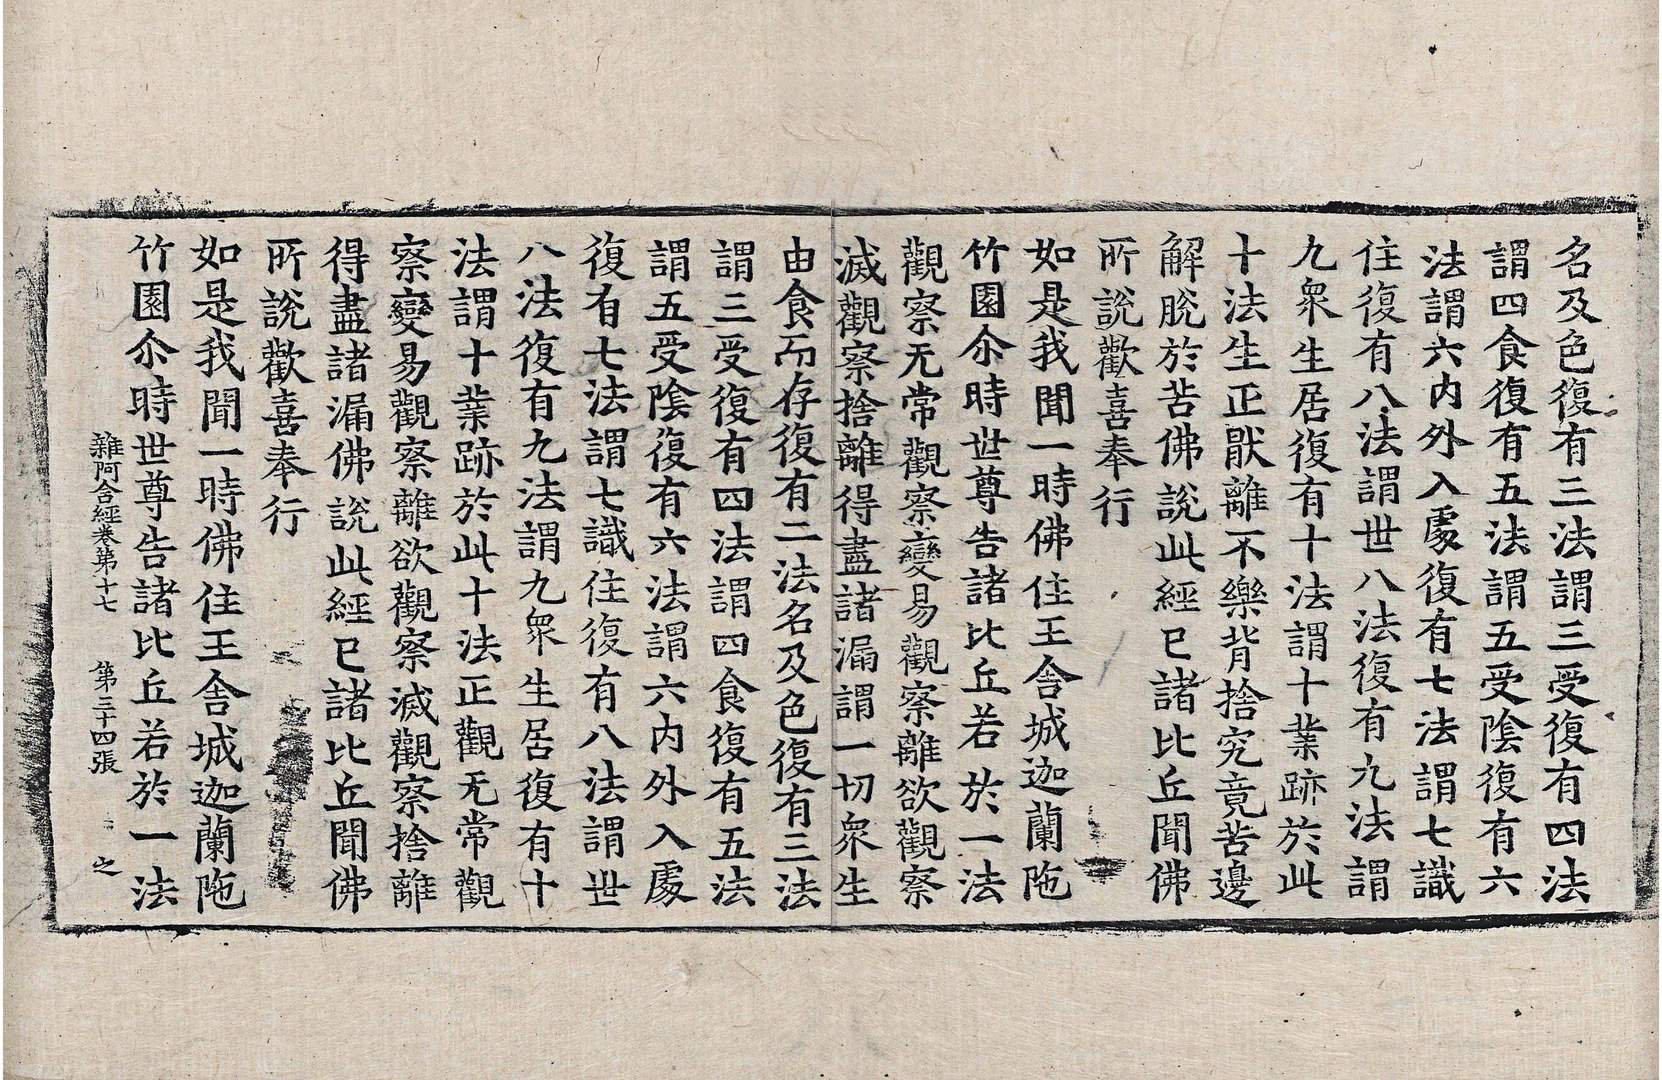 名及色復有三法謂三受復有四法
謂四食復有五法謂五受陰復有六
法謂六內外入處復有七法謂七識
住復有八法謂世八法復有九法謂
九衆生居復有十法謂十業跡於此
十法生正猒離不樂背捨究竟苦邊
解脫於苦佛說此經已諸比丘聞佛
所說歡喜奉行
如是我聞一時佛住王舍城迦蘭陁
竹園尒時世尊告諸比丘若於一法
觀察无常觀察變易觀察離欲觀察
滅觀察捨離得盡諸漏謂一切衆生
由食而存復有二法名及色復有三法
謂三受復有四法謂四食復有五法
謂五受陰復有六法謂六內外入處
復有七法謂七識住復有八法謂世
八法復有九法謂九衆生居復有十
法謂十業跡於此十法正觀无常觀
察變易觀察離欲觀察滅觀察捨離
得盡諸漏佛說此經已諸比丘聞佛
所說歡喜奉行
如是我聞一時佛住王舍城迦蘭陁
竹園尒時世尊告諸比丘若於一法
雜阿含經卷第十七 第三十四張 之